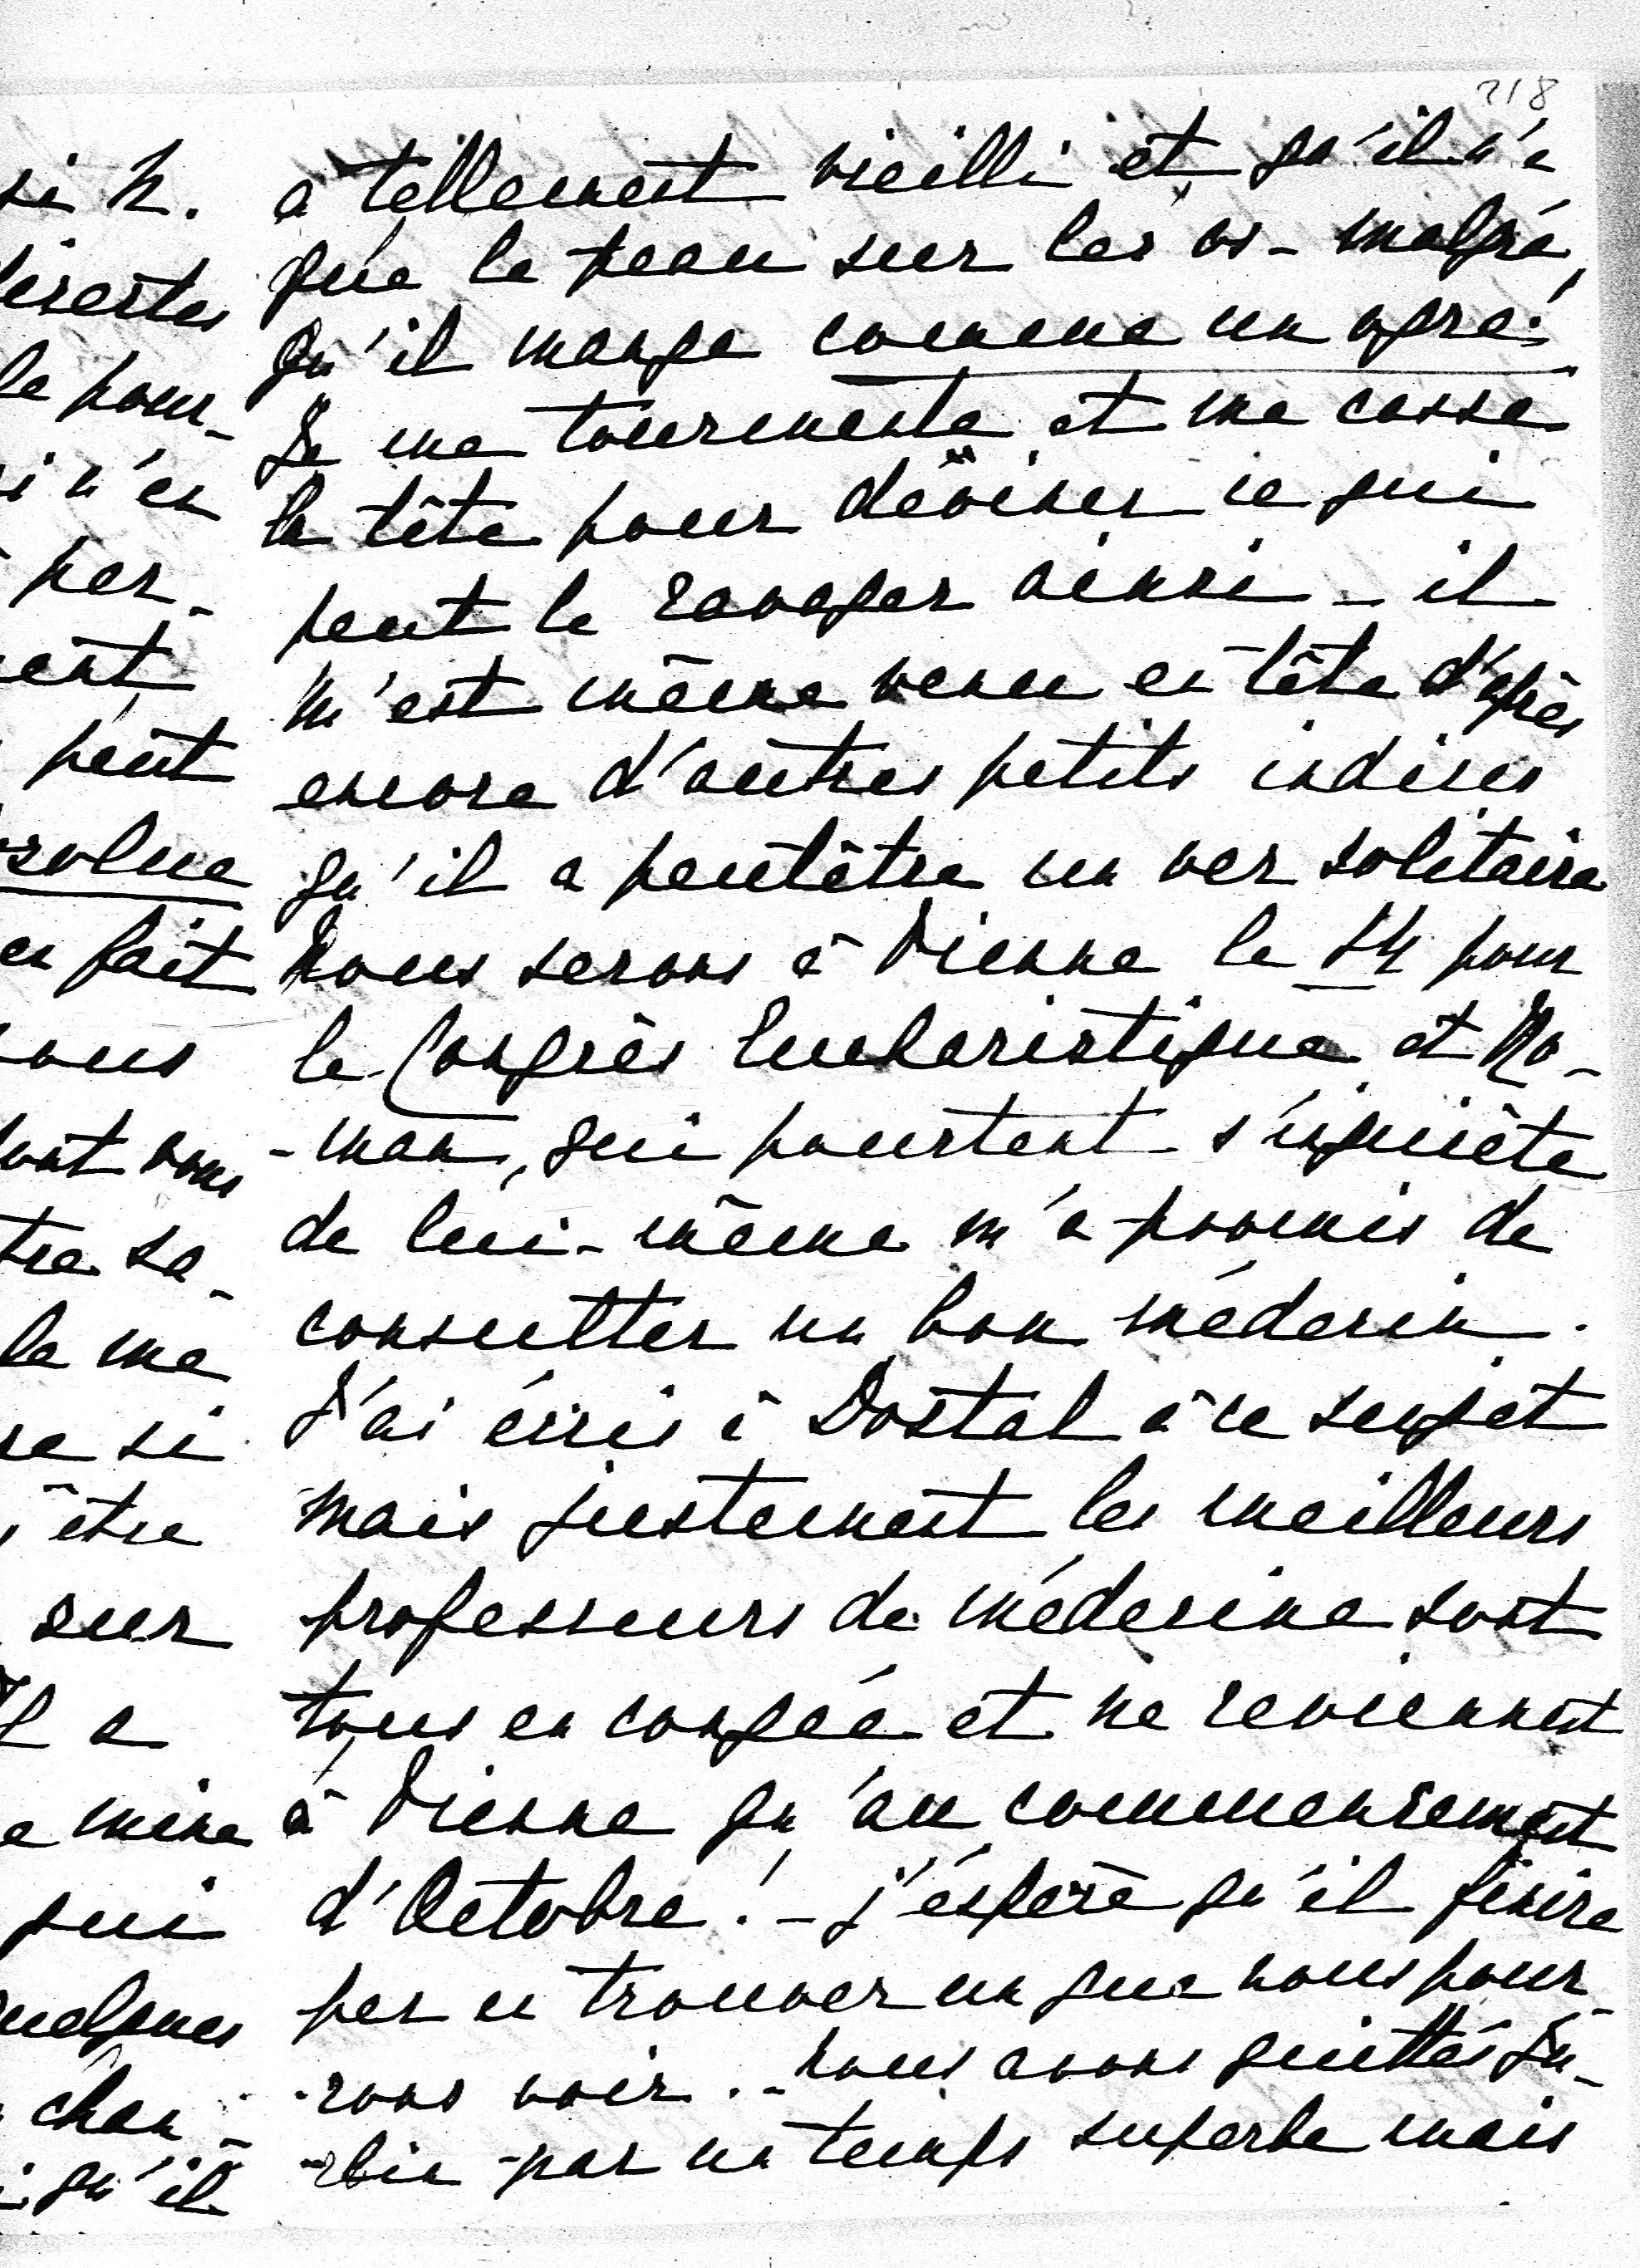 218
a tellement vieilli et qu'il n'a
que la peau sur les os - malgré
qu'il mange comme un ogre!
Je me tourmente et me casse
la tête pour déviner ce qui
peut le ravager ainsi - il
m'est même venu en tête d'après
encore d'autres petits indices
qu'il a peutêtre un ver solitaire
Nous serons à Vienne le 14 pour
le Congrès Eucharistique et Ro-
-man, qui pourtant s'inquiète
de lui-même m'a promis de
consulter un bon médecin.
J'ai écris à Dostal à ce sujet
mais justement les meilleurs
professeurs de médecine sont
tous en congée et ne reviennent
à Vienne qu'au commencement
d'Octobre! - j'éspère qu'il finira
par en trouver un que nous pour-
-rons voir. - Nous avons quittés Du-
-bin par un temps superbe mais
si N.
désertes
le pour-
i n'en
per-
ent
peut
solue
en fait
ous
ont vous
tre sa-
la me
re si
être
sur
Il a
e mine
qui
quelques
chan-
qu'il